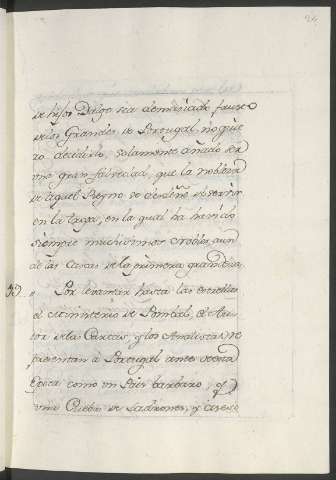 24
de hijos Digo sea demasiado fausto
de los Grandes de Portugal, no quie
ro decidirlo, solamente añado ser
una gran falsedad, que la nobleza
de aquel Reyno se desdeñe de servir
en la tropa, en la qual ha havido
siempre muchisimos nobles, aun
de las Casas de la primera grandeza.
Por levantar hasta las estrellas
el ministerio de Pombal, el Au
tor de las Cartas, y los Analistas re
presentan à Portugal antes de esta
Epoca como un Pais barbaro, y
una Cueba de Ladrones, y